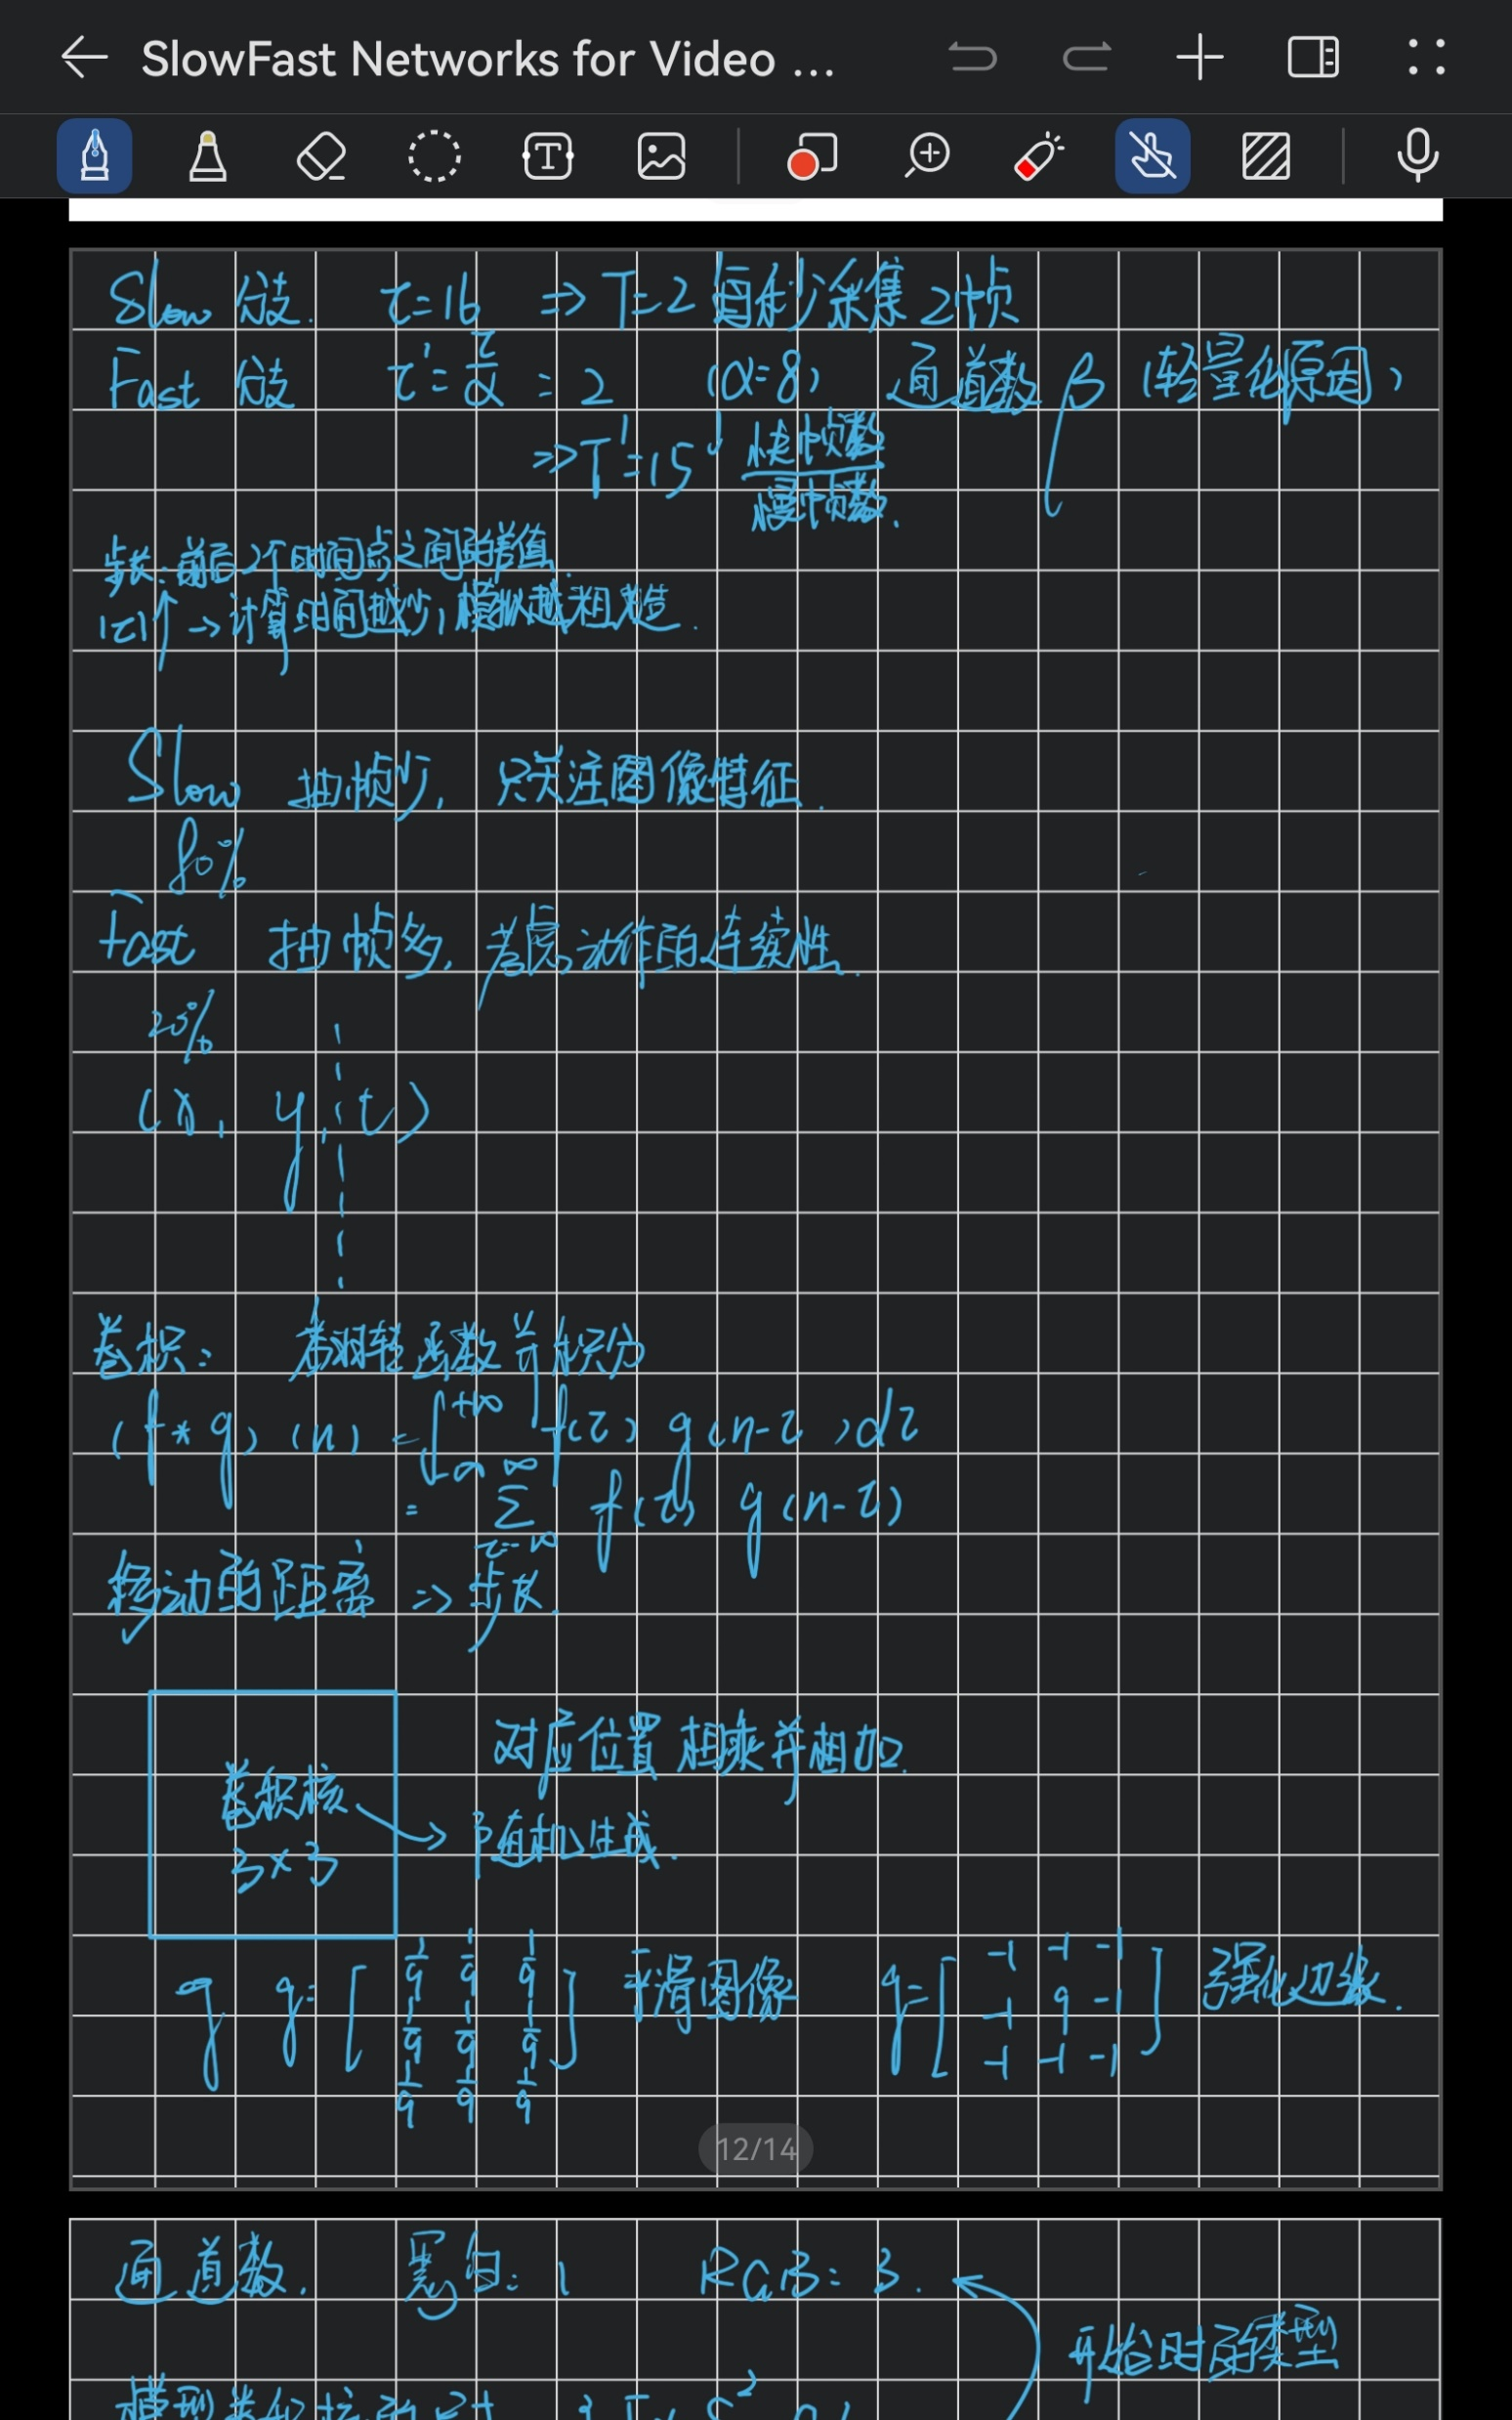 SlowFast Networks for Video ...
Slow 分支. τ=16 ⇒ T=2 每秒采集2帧
Fast 分支 τ'=τ/α=2 (α=8) 通道数β (轻量化原因)
⇒T'=15 快帧数/慢帧数.
步长:前后2个时间点之间的差值.
|τ|↑→计算时间越少,模拟越粗糙.
Slow 抽帧少, 只关注图像特征.
80%
Fast 抽帧多, 考虑动作的连续性.
20%
(x, y, t)
卷积: 翻转函数并积分
(f*g)(n) = ∫_{-∞}^{+∞} f(τ) g(n-τ)dτ
= Σ_{τ=-∞}^{∞} f(τ) g(n-τ)
移动的距离 ⇒步长.
对应位置相乘并相加.
卷积核 → 随机生成.
3×3
g g=[1/9 1/9 1/9] 平滑图像 g=[-1 -1 -1] 强化边缘.
1/9 1/9 1/9 -1 9 -1
1/9 1/9 1/9 -1 -1 -1
12/14
通道数. 黑白: 1 RGB: 3.
开始时用模型